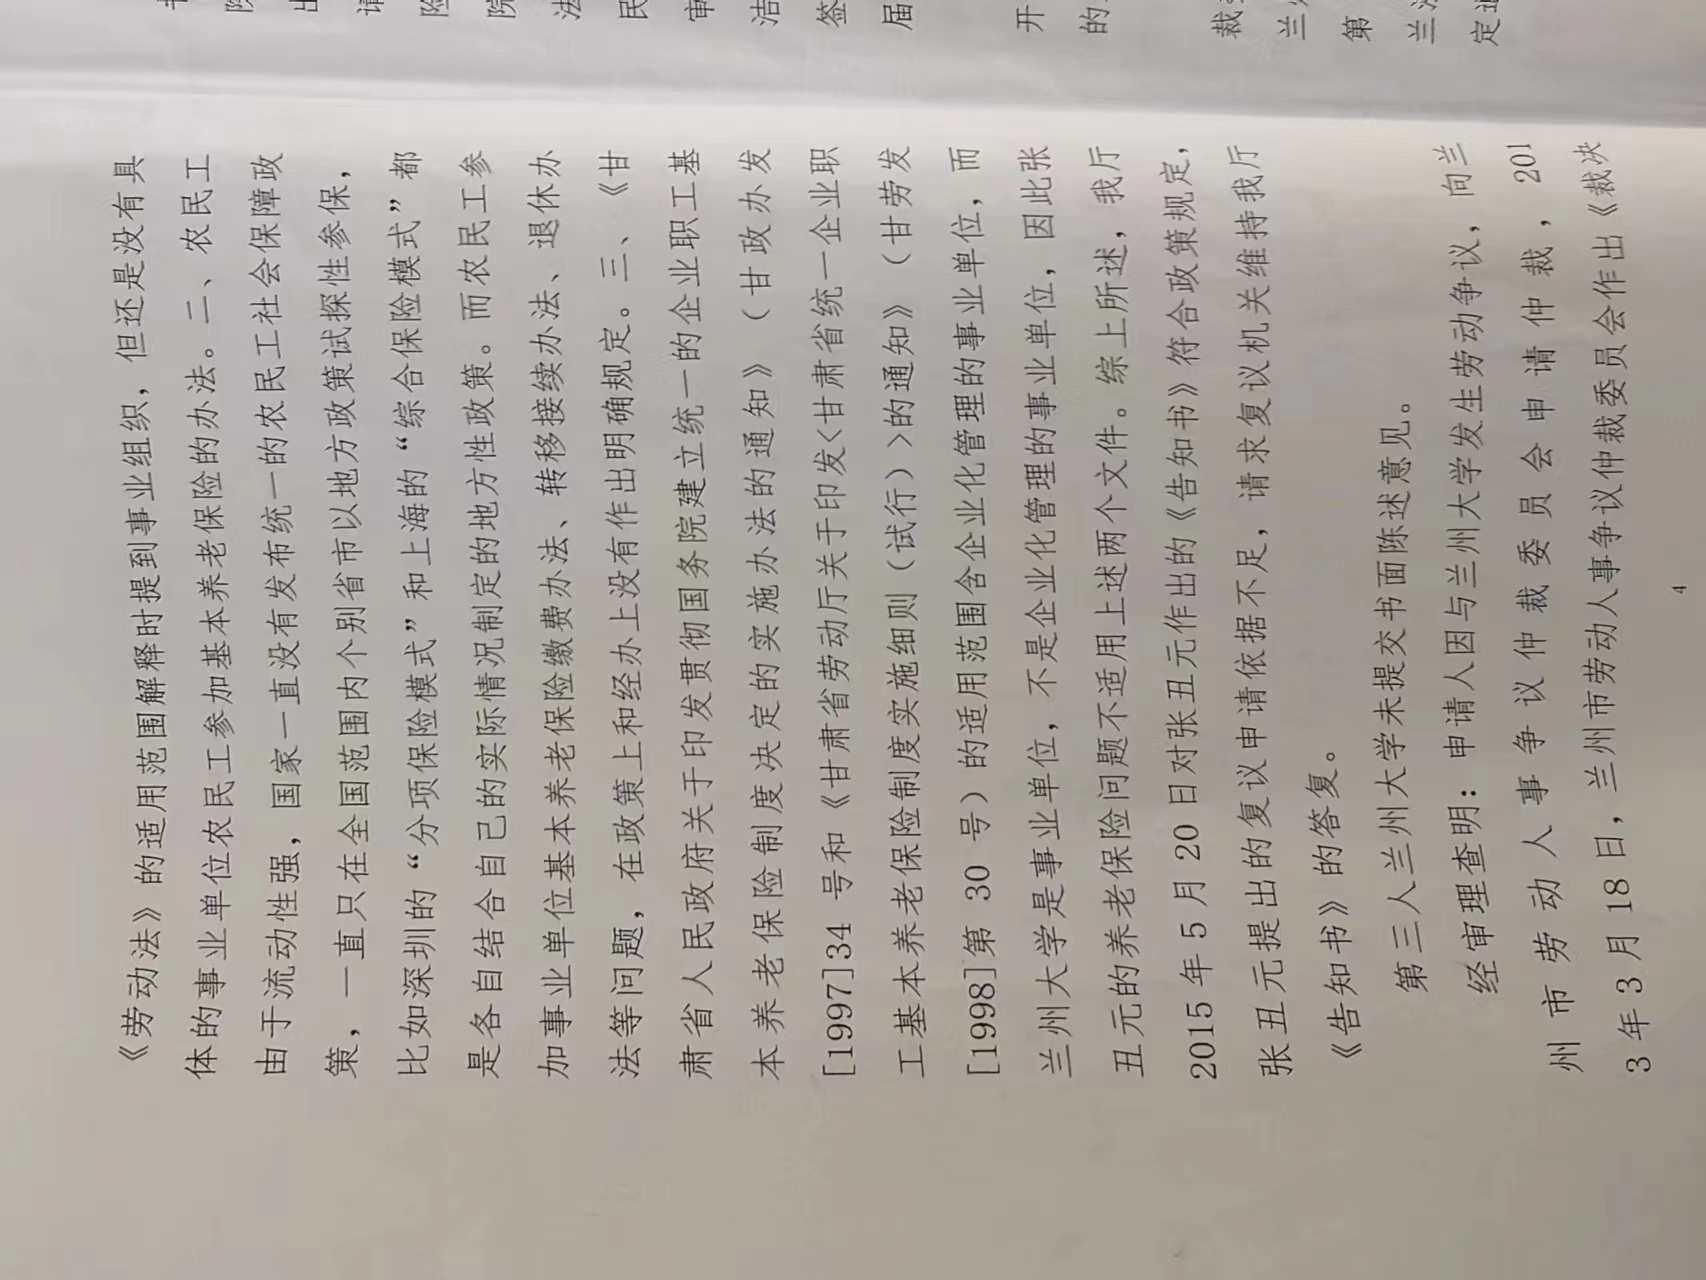 《劳动法》的适用范围解释时提到事业组织，但还是没有具
体的事业单位农民工参加基本养老保险的办法。二、农民工
由于流动性强，国家一直没有发布统一的农民工社会保障政
策，一直只在全国范围内个别省市以地方政策试探性参保，
比如深圳的“分项保险模式”和上海的“综合保险模式”都
是各自结合自己的实际情况制定的地方性政策。而农民工参
加事业单位基本养老保险缴费办法、转移接续办法、退休办
法等问题，在政策上和经办上没有作出明确规定。三、《甘
肃省人民政府关于印发贯彻国务院建立统一的企业职工基
本养老保险制度决定的实施办法的通知》（甘政办发
[1997]34 号和《甘肃省劳动厅关于印发<甘肃省统一企业职
工基本养老保险制度实施细则（试行）>的通知》（甘劳发
[1998]第 30 号）的适用范围含企业化管理的事业单位，而
兰州大学是事业单位，不是企业化管理的事业单位，因此张
丑元的养老保险问题不适用上述两个文件。综上所述，我厅
2015 年 5 月 20 日对张丑元作出的《告知书》符合政策规定，
张丑元提出的复议申请依据不足，请求复议机关维持我厅
《告知书》的答复。
第三人兰州大学未提交书面陈述意见。
经审理查明：申请人因与兰州大学发生劳动争议，向兰
州市劳动人事争议仲裁委员会申请仲裁，201
3 年 3 月 18 日，兰州市劳动人事争议仲裁委员会作出《裁决
4
险
院
法
民
审
洁
签
届
开
的
裁
兰
第
兰
定